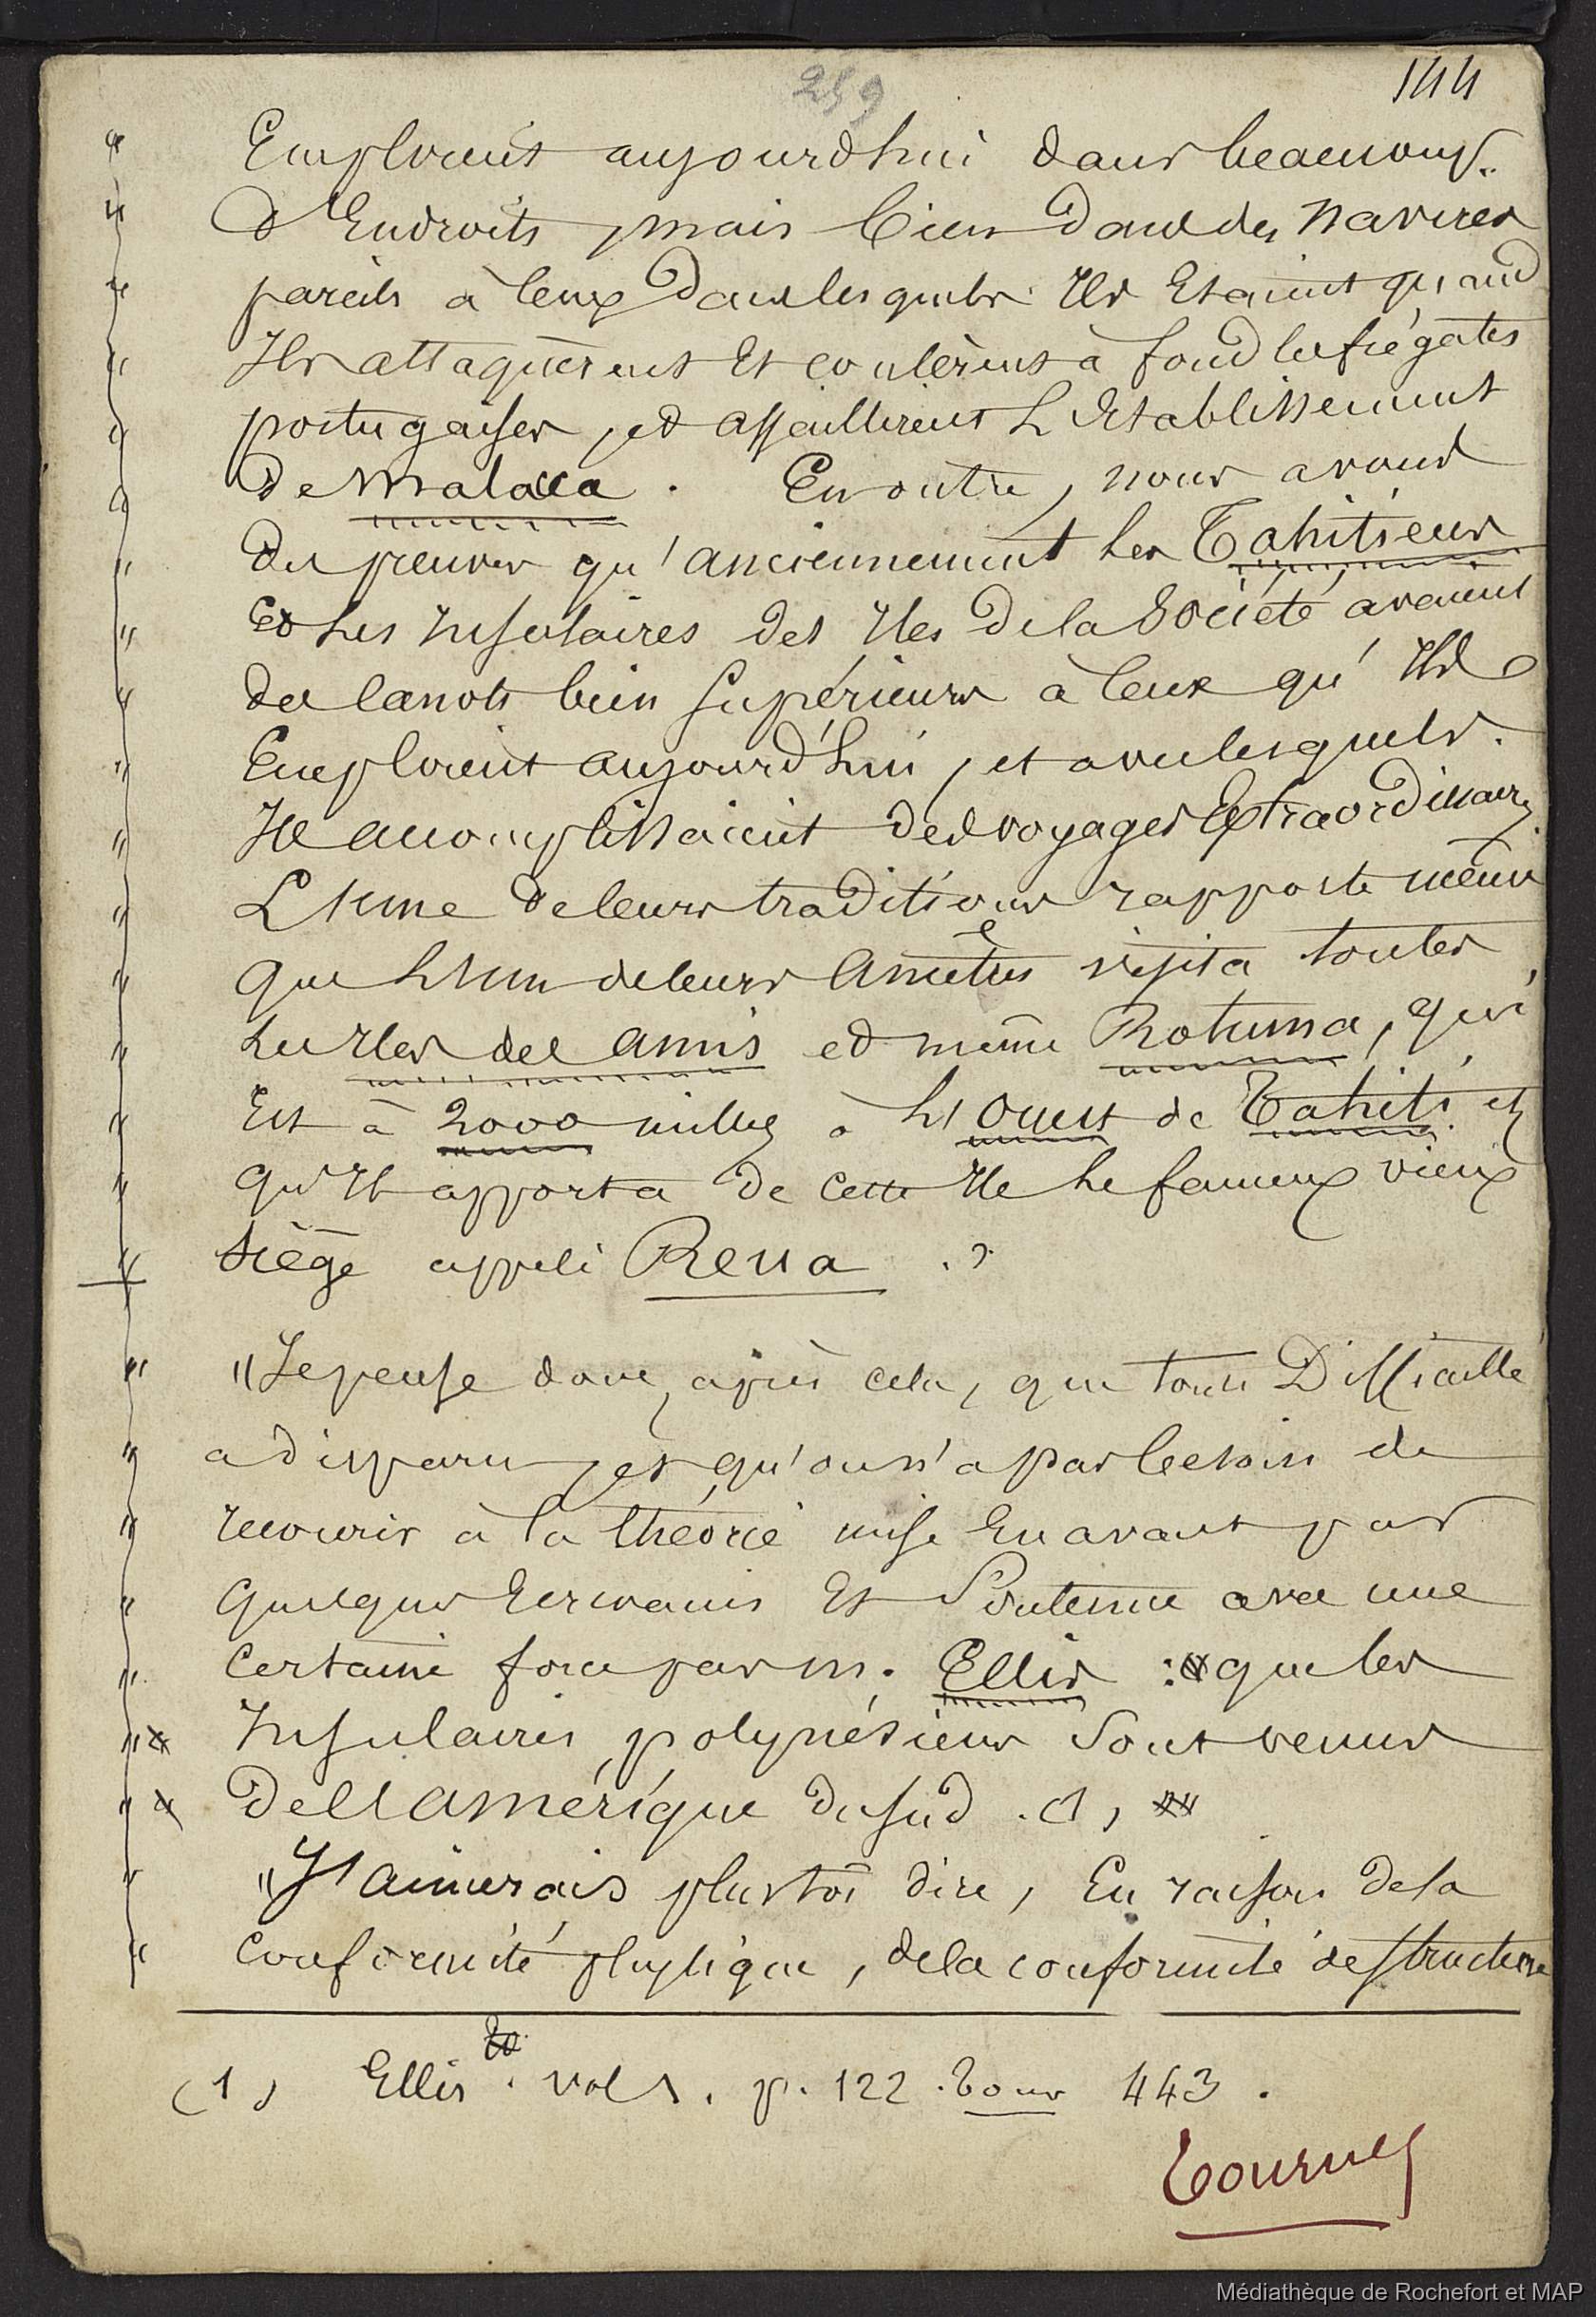 259
144
Emploient aujourd'hui dans beaucoup
d'Endroits, mais bien dans des navires
pareils à ceux dans lesquels Ils Etaient quand
Ils attaquèrent Et coulèrent à fond les frégates
portugaises, et assaillirent L'Etablissement
de Malacca. En outre, nous avons
des preuves qu'anciennement les Tahitiens
Et les Insulaires des Iles de la Société avaient
des canots bien supérieurs à ceux qu'Ils
Emploient aujourd'hui, et avec lesquels
Ils accomplissaient des voyages Extraordinaires.
L'une de leurs traditions rapporte même
que L'un de leurs Ancêtres visita toutes
les Iles des Amis et même Rotuma, qui
Est à 2000 milles à L'Ouest de Tahiti et
qu'Il apporta de cette Ile le fameux vieux
siège appelé Reua. »
"Je pense donc, après cela, que toute Difficulté
a disparu, et qu'on n'a pas besoin de
recourir à la théorie mise En avant par
quelques Ecrivains Et Soutenue avec une
certaine force par M. Ellis : que les
Insulaires polynésiens Sont venus
de l'Amérique du Sud. (1)
"J'aimerais plustôt dire, En raison de la
conformité physique, de la conformité de structure
(1) Ellis. vol 1. p. 122. Tour 443.
Tournez
Médiathèque de Rochefort et MAP